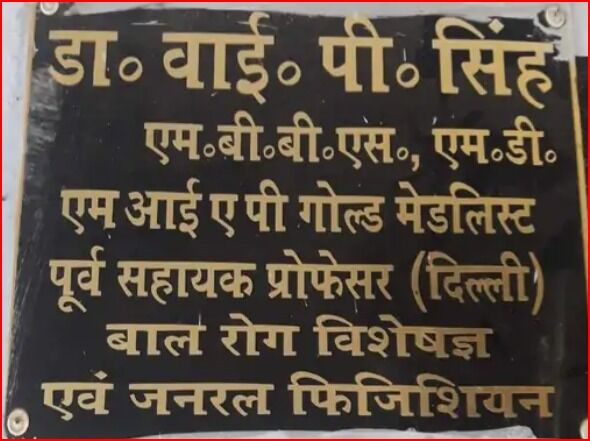 डा॰ वाई॰ पी॰ सिंह
एम॰बी॰बी॰एस॰, एम॰डी॰
एम आई ए पी गोल्ड मेडलिस्ट
पूर्व सहायक प्रोफेसर (दिल्ली)
बाल रोग विशेषज्ञ
एवं जनरल फिजिशियन